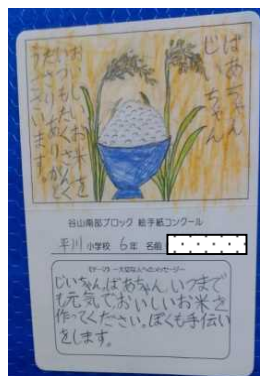 ばあちゃん
じいちゃん
おいしいお米を
いつもたくさんく
ださりありがと
うございます。
谷山南部ブロック 絵手紙コンクール
平川 小学校 6年 名前
《テーマ》 ―大切な人へのメッセージ―
じいちゃんばあちゃん、いつまで
も元気でおいしいお米を
作ってください。ぼくも手伝い
をします。